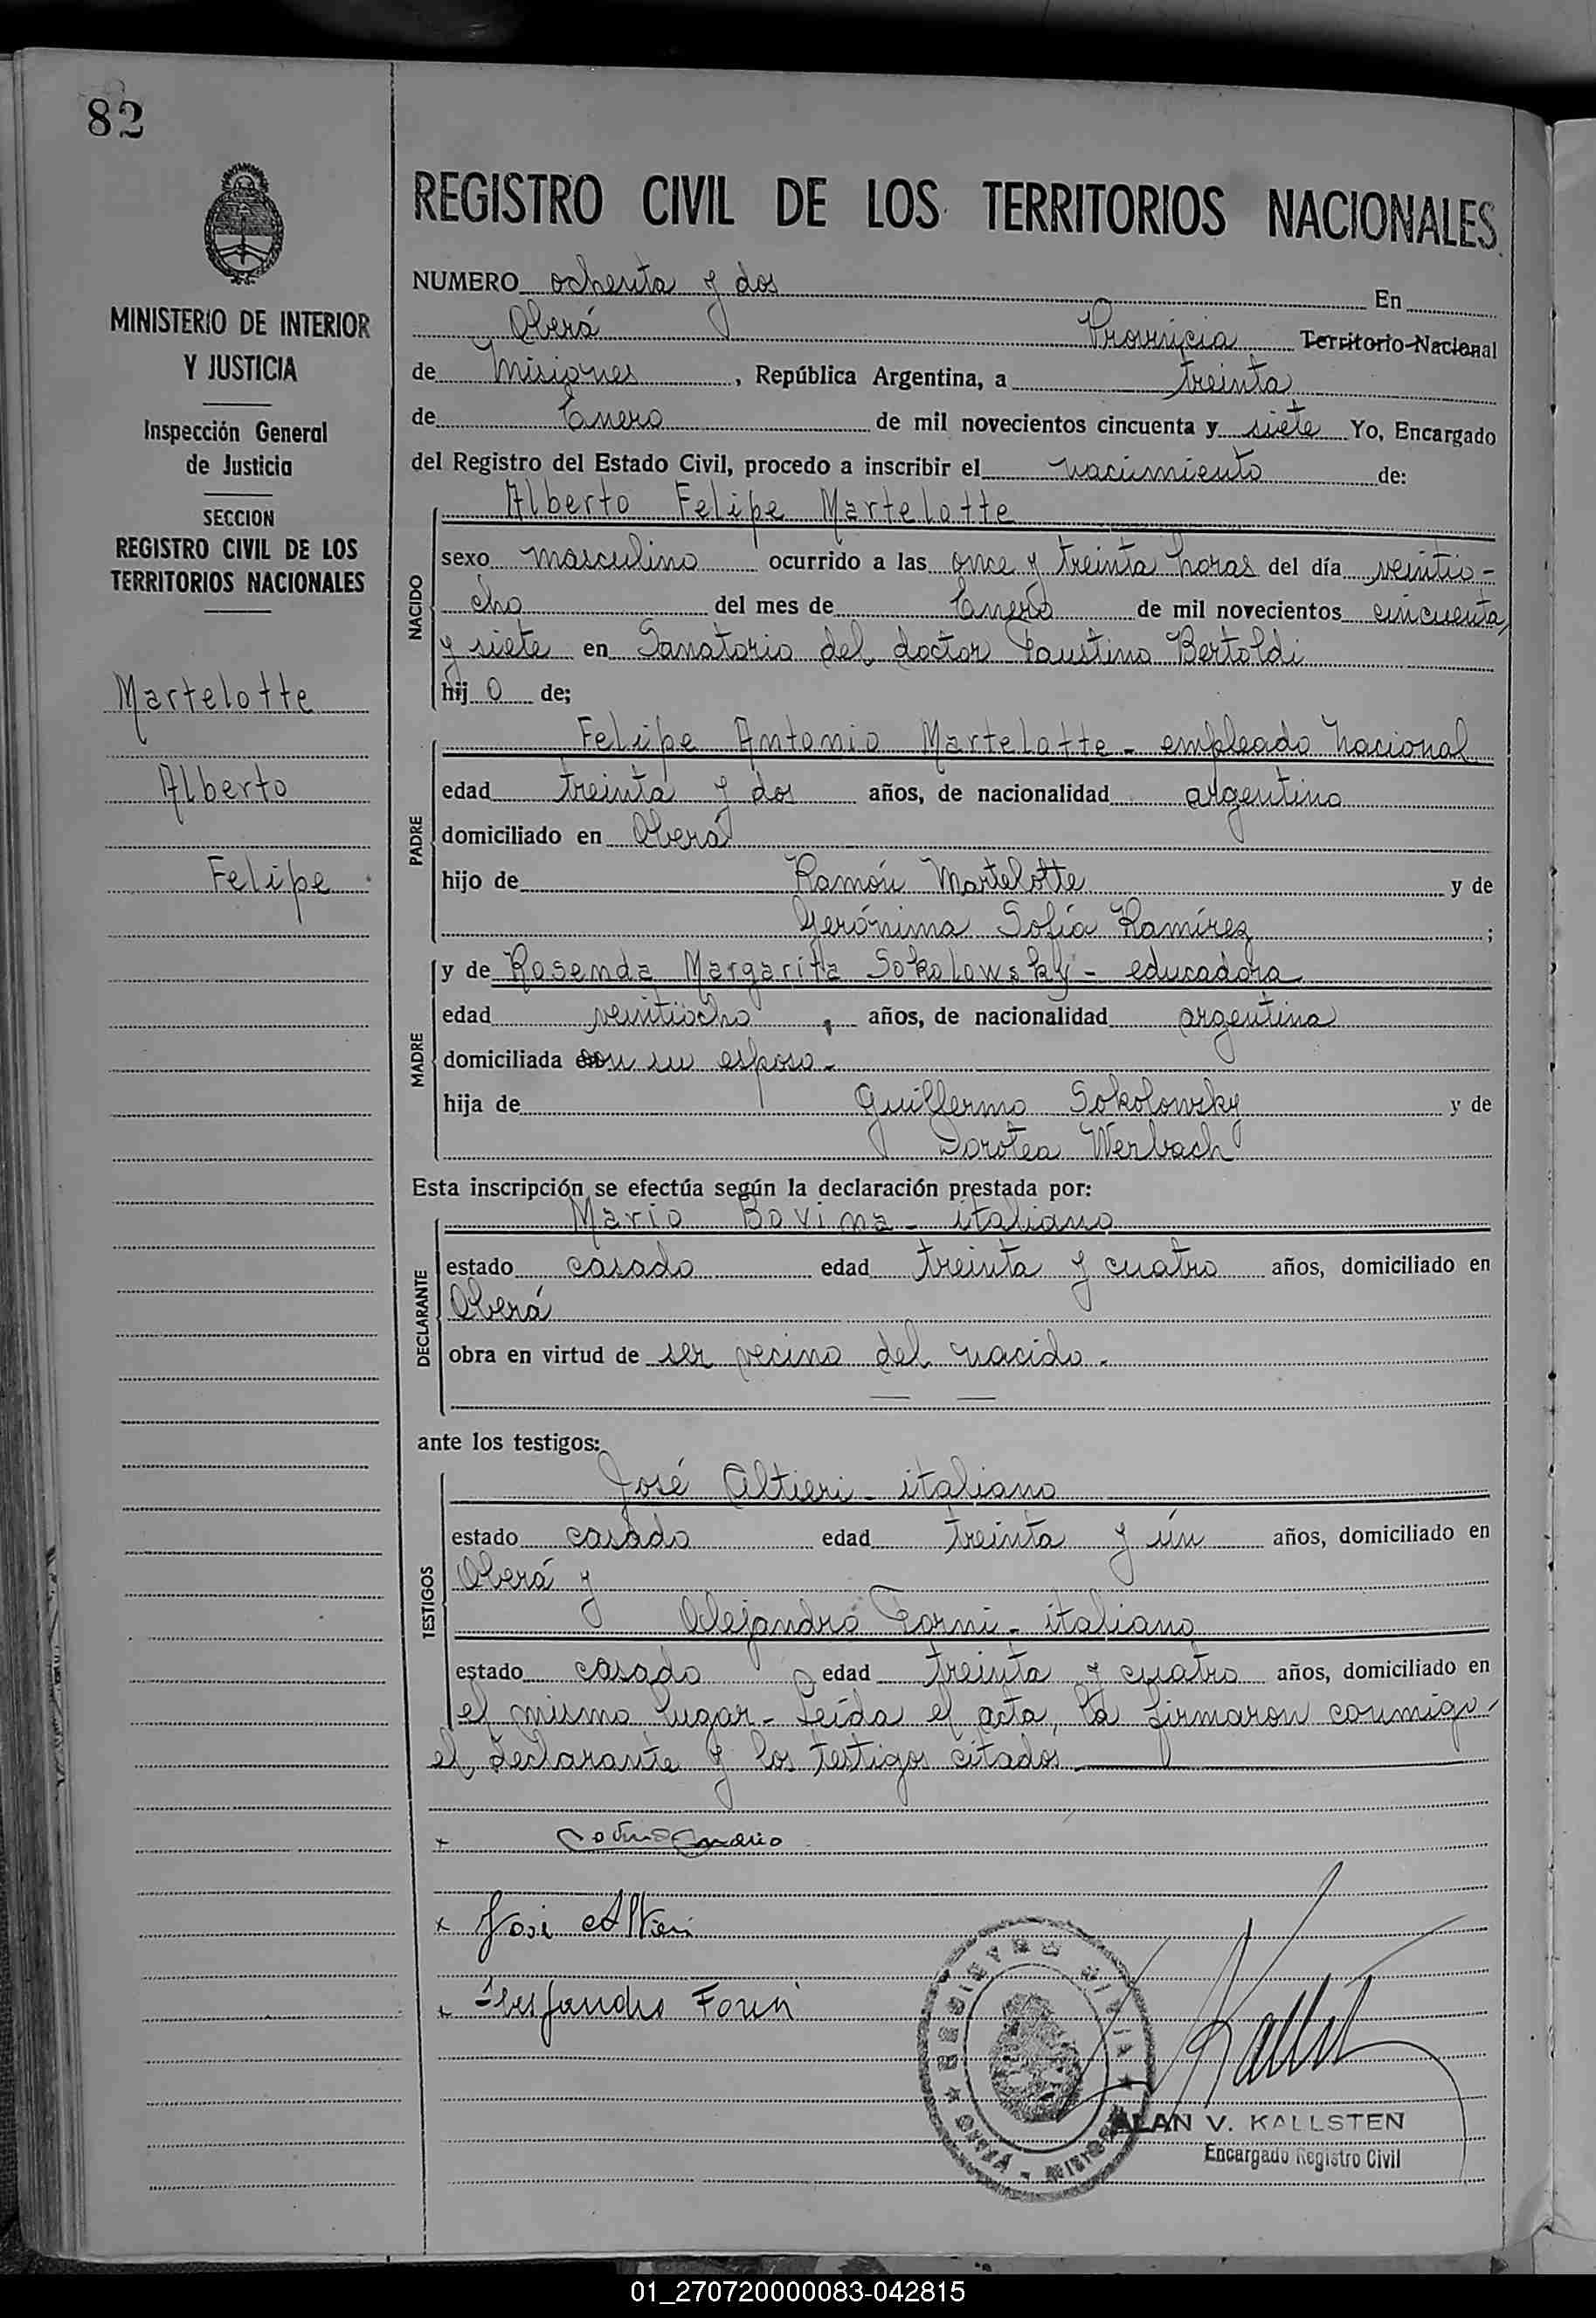 82
MINISTERIO DE INTERIOR
Y JUSTICIA
Inspección General
de Justicia
SECCION
REGISTRO CIVIL DE LOS
TERRITORIOS NACIONALES
Martelotte
Alberto
Felipe
REGISTRO CIVIL DE LOS TERRITORIOS NACIONALES
NUMERO ochenta y dos En
Oberá Provincia Territorio Nacional
de Misiones, República Argentina, a treinta
de Enero de mil novecientos cincuenta y siete Yo, Encargado
del Registro del Estado Civil, procedo a inscribir el nacimiento de:
NACIDO
Alberto Felipe Martelotte
sexo masculino ocurrido a las once y treinta horas del día veintio-
cho del mes de Enero de mil novecientos cincuenta
y siete en Sanatorio del doctor Faustino Bertoldi
hij o de;
PADRE
Felipe Antonio Martelotte - empleado nacional
edad treinta y dos años, de nacionalidad argentino
domiciliado en Oberá
hijo de Ramón Martelotte y de
Gerónima Sofía Ramírez ;
MADRE
y de Rosenda Margarita Sokolowsky - educadora
edad veintiocho, años, de nacionalidad argentina
domiciliada con su esposo.-
hija de Guillermo Sokolowsky y de
Dorotea Werbach
Esta inscripción se efectúa según la declaración prestada por:
DECLARANTE
Mario Bovina - italiano
estado casado edad treinta y cuatro años, domiciliado en
Oberá
obra en virtud de ser vecino del nacido.
ante los testigos:
TESTIGOS
José Altieri - italiano
estado casado edad treinta y ún años, domiciliado en
Oberá y
Alejandro Forni - italiano
estado casado edad treinta y cuatro años, domiciliado en
el mismo lugar - Leída el acta, la firmaron conmigo,
el declarante y los testigos citados
x Mario
x José Altieri
x Alejandro Forni
REGISTRO CIVIL
OBERA - MISIONES
Kallsten
ALAN V. KALLSTEN
Encargado Registro Civil
01_270720000083-042815